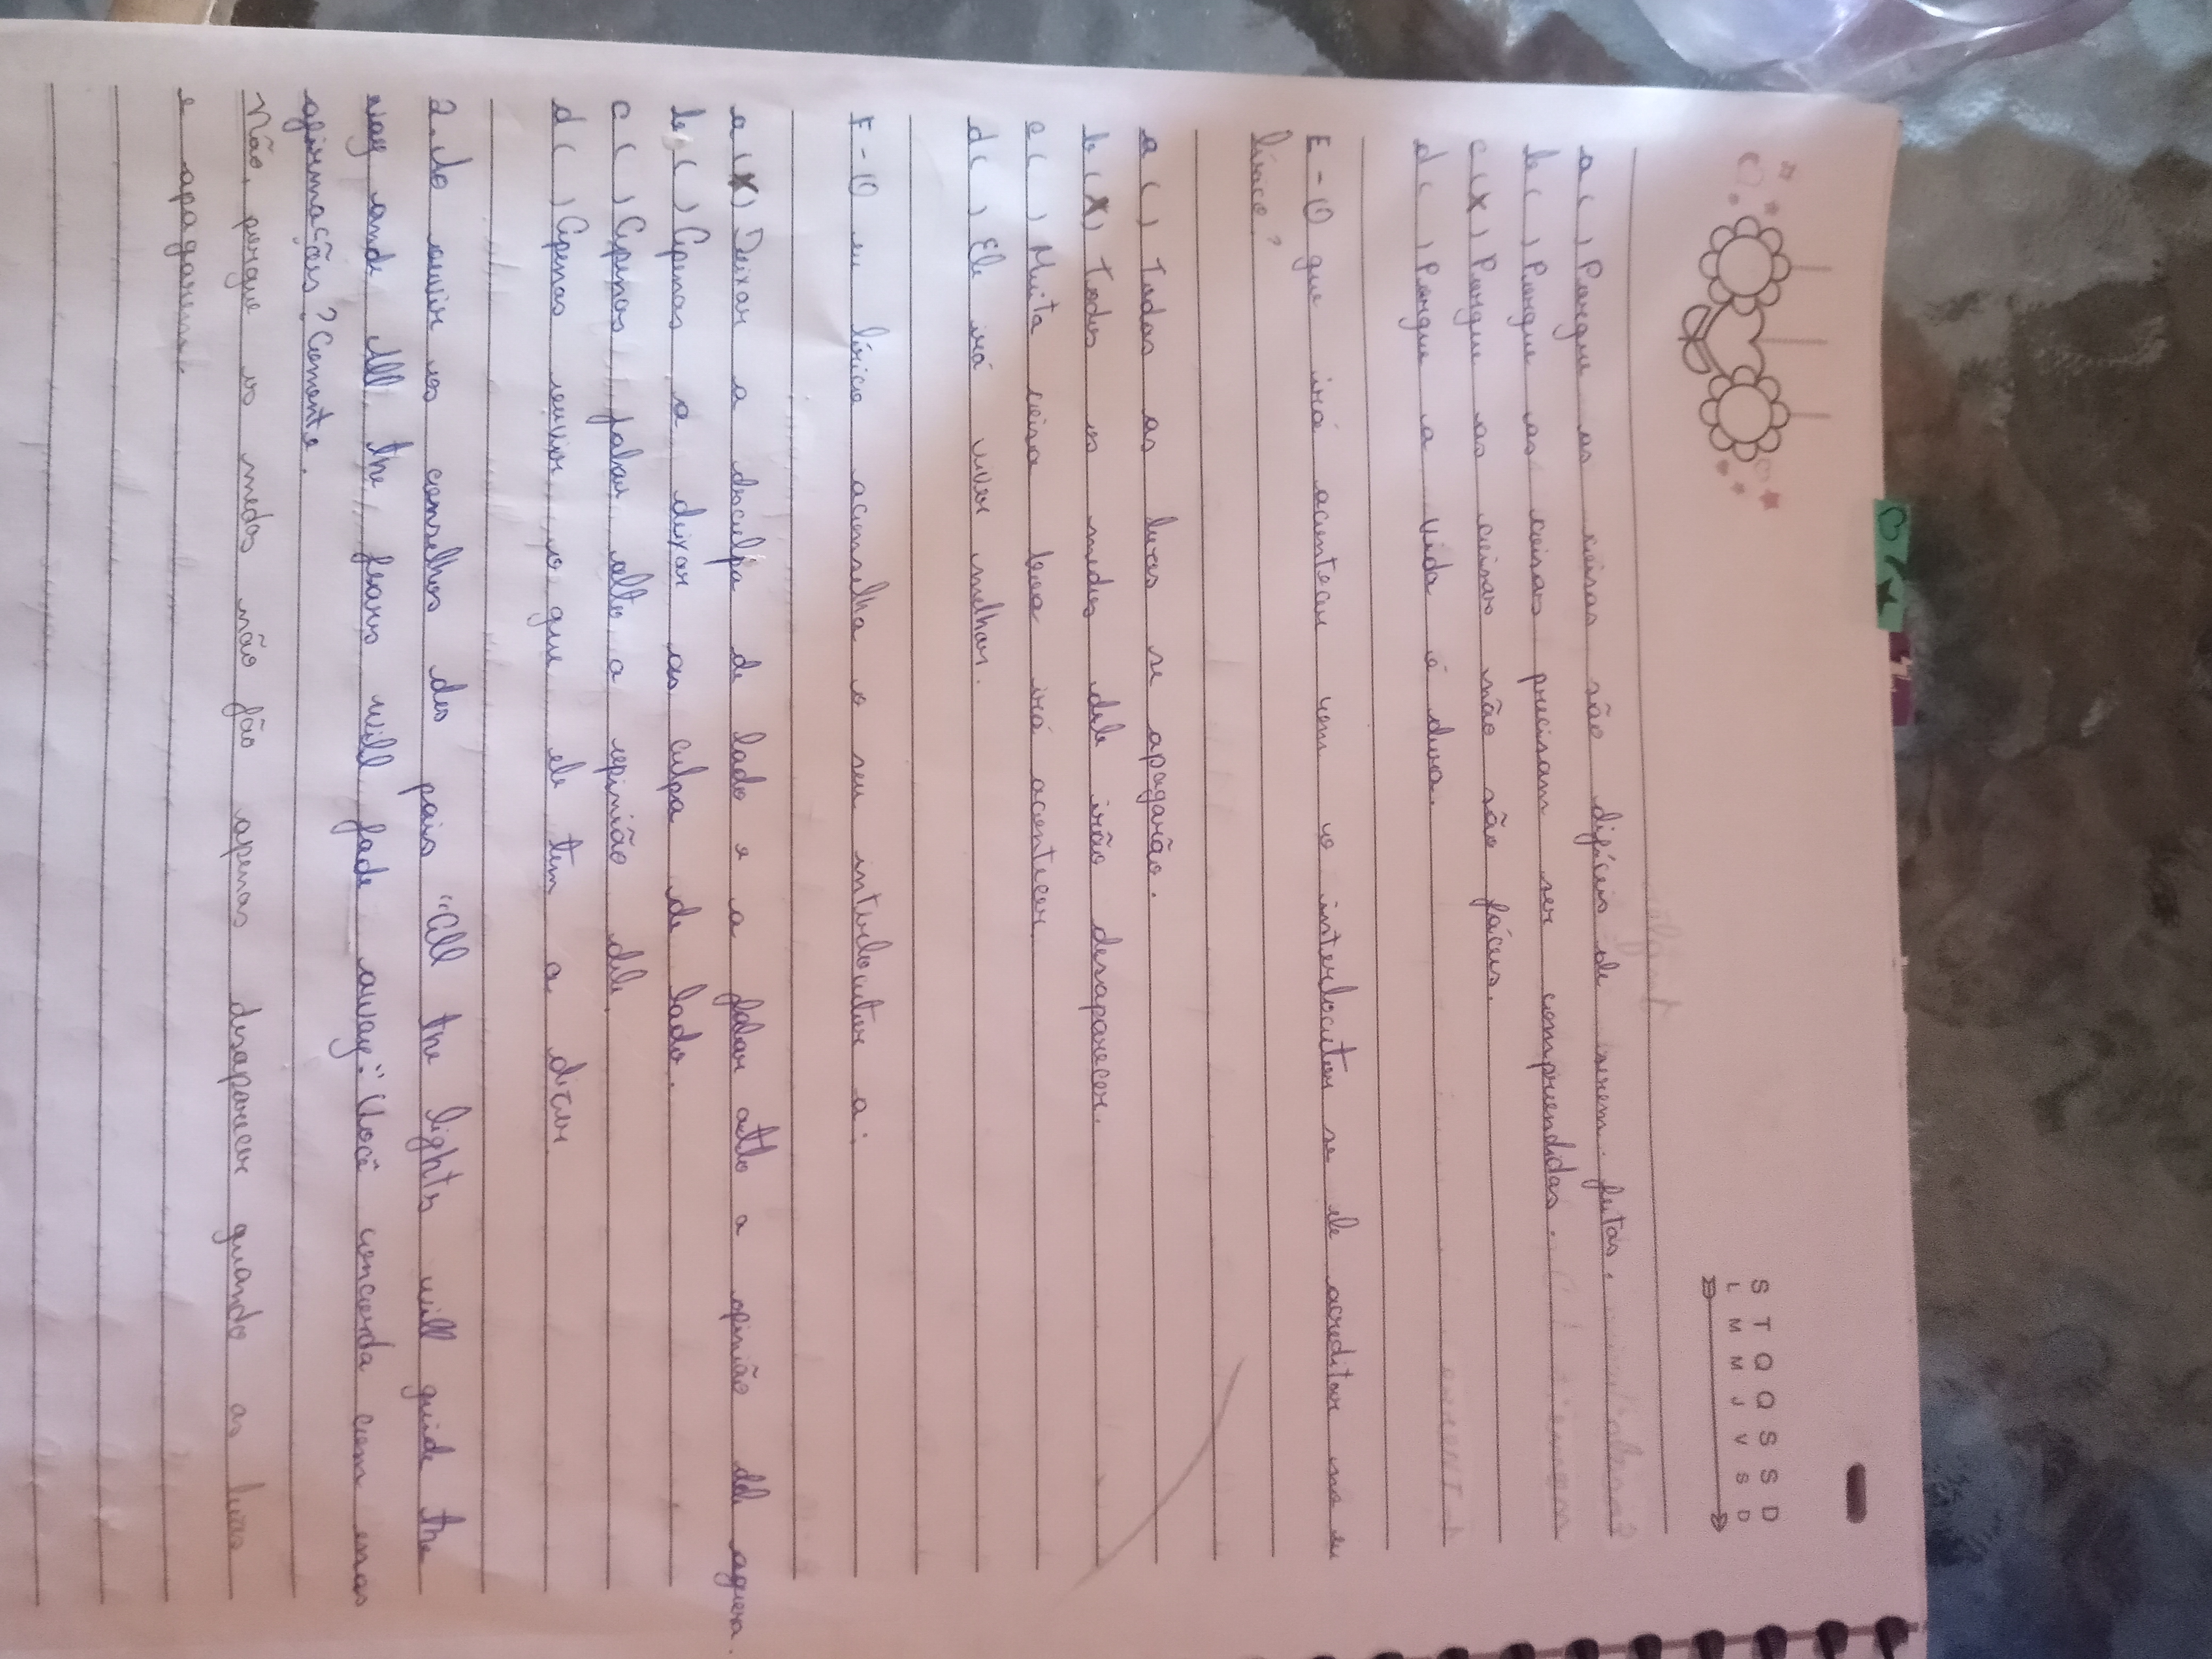 S T Q Q S S D
L M M J V S D
a ( ) Porque as coisas são difíceis de serem feitas.
b ( ) Porque as coisas precisam ser comprendidas.
c (X) Porque as coisas não são fáceis.
d ( ) Porque a vida é dura.
E - O que irá acontecer com o interlocutor se ele acreditar no eu
lírico?
a ( ) Todas as luzes se apagarão.
b (X) Todos os medos dele irão desaparecer.
c ( ) Muita coisa boa irá acontecer.
d ( ) Ele irá viver melhor.
F - O eu lírico aconselha o seu interlocutor a:
a (X) Deixar a desculpa de lado e a falar alto a opinião dele agora.
b ( ) Apenas a deixar as culpa de lado.
c ( ) Apenas falar alto a opinião dele.
d ( ) Apenas ouvir o que ele tem a dizer
2. Ao ouvir os conselhos dos pais "All the lights will guide the
way and All the fears will fade away". Você concorda com essas
afirmações? Comente.
Não, porque os medos não vão apenas desaparecer quando as luzes
e apagarem.